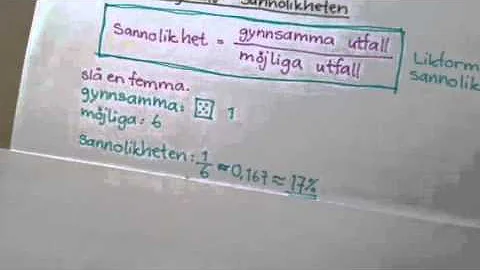 Sannolikheten
Sannolikhet = gynnsamma utfall
möjliga utfall
Likform
sannolik
slå en femma.
gynnsamma: 1
möjliga: 6
Sannolikheten: 1/6 ≈ 0,167 ≈ 17%